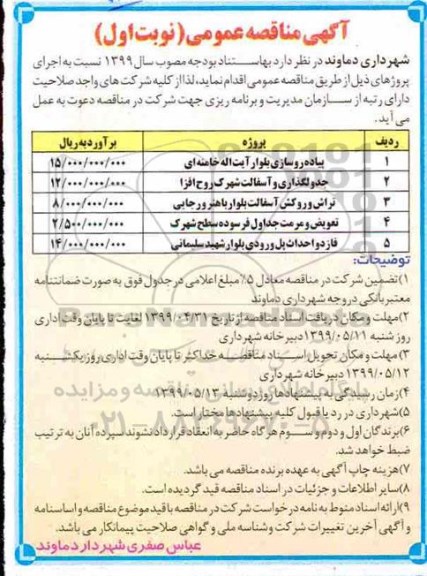 آگهی مناقصه عمومی (نوبت اول)
شهرداری دماوند در نظر دارد به استناد بودجه مصوب سال ۱۳۹۹ نسبت به اجرای
پروژهای ذیل از طریق مناقصه عمومی اقدام نماید، لذا از کلیه شرکت های واجد صلاحیت
دارای رتبه از سازمان مدیریت و برنامه ریزی جهت شرکت در مناقصه دعوت به عمل
می آید.
ردیف پروژه برآورد به ریال
۱ پیاده روسازی بلوار آیت اله خامنه ای ۱۵/۰۰۰/۰۰۰/۰۰۰
۲ جدولگذاری و آسفالت شهرک روح افزا ۱۲/۰۰۰/۰۰۰/۰۰۰
۳ تراش و روکش آسفالت بلوار باهنر و رجایی ۸/۰۰۰/۰۰۰/۰۰۰
۴ تعویض و مرمت جداول فرسوده سطح شهرک ۲/۵۰۰/۰۰۰/۰۰۰
۵ فاز دو احداث پل ورودی بلوار شهید سلیمانی ۱۴/۰۰۰/۰۰۰/۰۰۰
توضیحات:
۱) تضمین شرکت در مناقصه معادل ۵٪ مبلغ اعلامی در جدول فوق به صورت ضمانتنامه
معتبر بانکی در وجه شهرداری دماوند
۲) مهلت و مکان دریافت اسناد مناقصه از تاریخ ۱۳۹۹/۰۴/۳۱ لغایت تا پایان وقت اداری
روز شنبه ۱۳۹۹/۰۵/۱۱ دبیرخانه شهرداری
۳) مهلت و مکان تحویل اسناد مناقصه حداکثر تا پایان وقت اداری روز یکشنبه
۱۳۹۹/۰۵/۱۲ دبیرخانه شهرداری
۴) زمان رسیدگی به پیشنهادها روز دوشنبه ۱۳۹۹/۰۵/۱۳
۵) شهرداری در رد یا قبول کلیه پیشنهادها مختار است.
۶) برندگان اول و دوم و سوم هر گاه حاضر به انعقاد قرار داد نشوند سپرده آنان به ترتیب
ضبط خواهد شد.
۷) هزینه چاپ آگهی به عهده برنده مناقصه می باشد.
۸) سایر اطلاعات و جزئیات در اسناد مناقصه قید گردیده است.
۹) ارائه اسناد منوط به نامه درخواست شرکت در مناقصه با قید موضوع مناقصه و اساسنامه
و آگهی آخرین تغییرات شرکت و شناسه ملی و گواهی صلاحیت پیمانکار می باشد.
عباس صفری شهردار دماوند